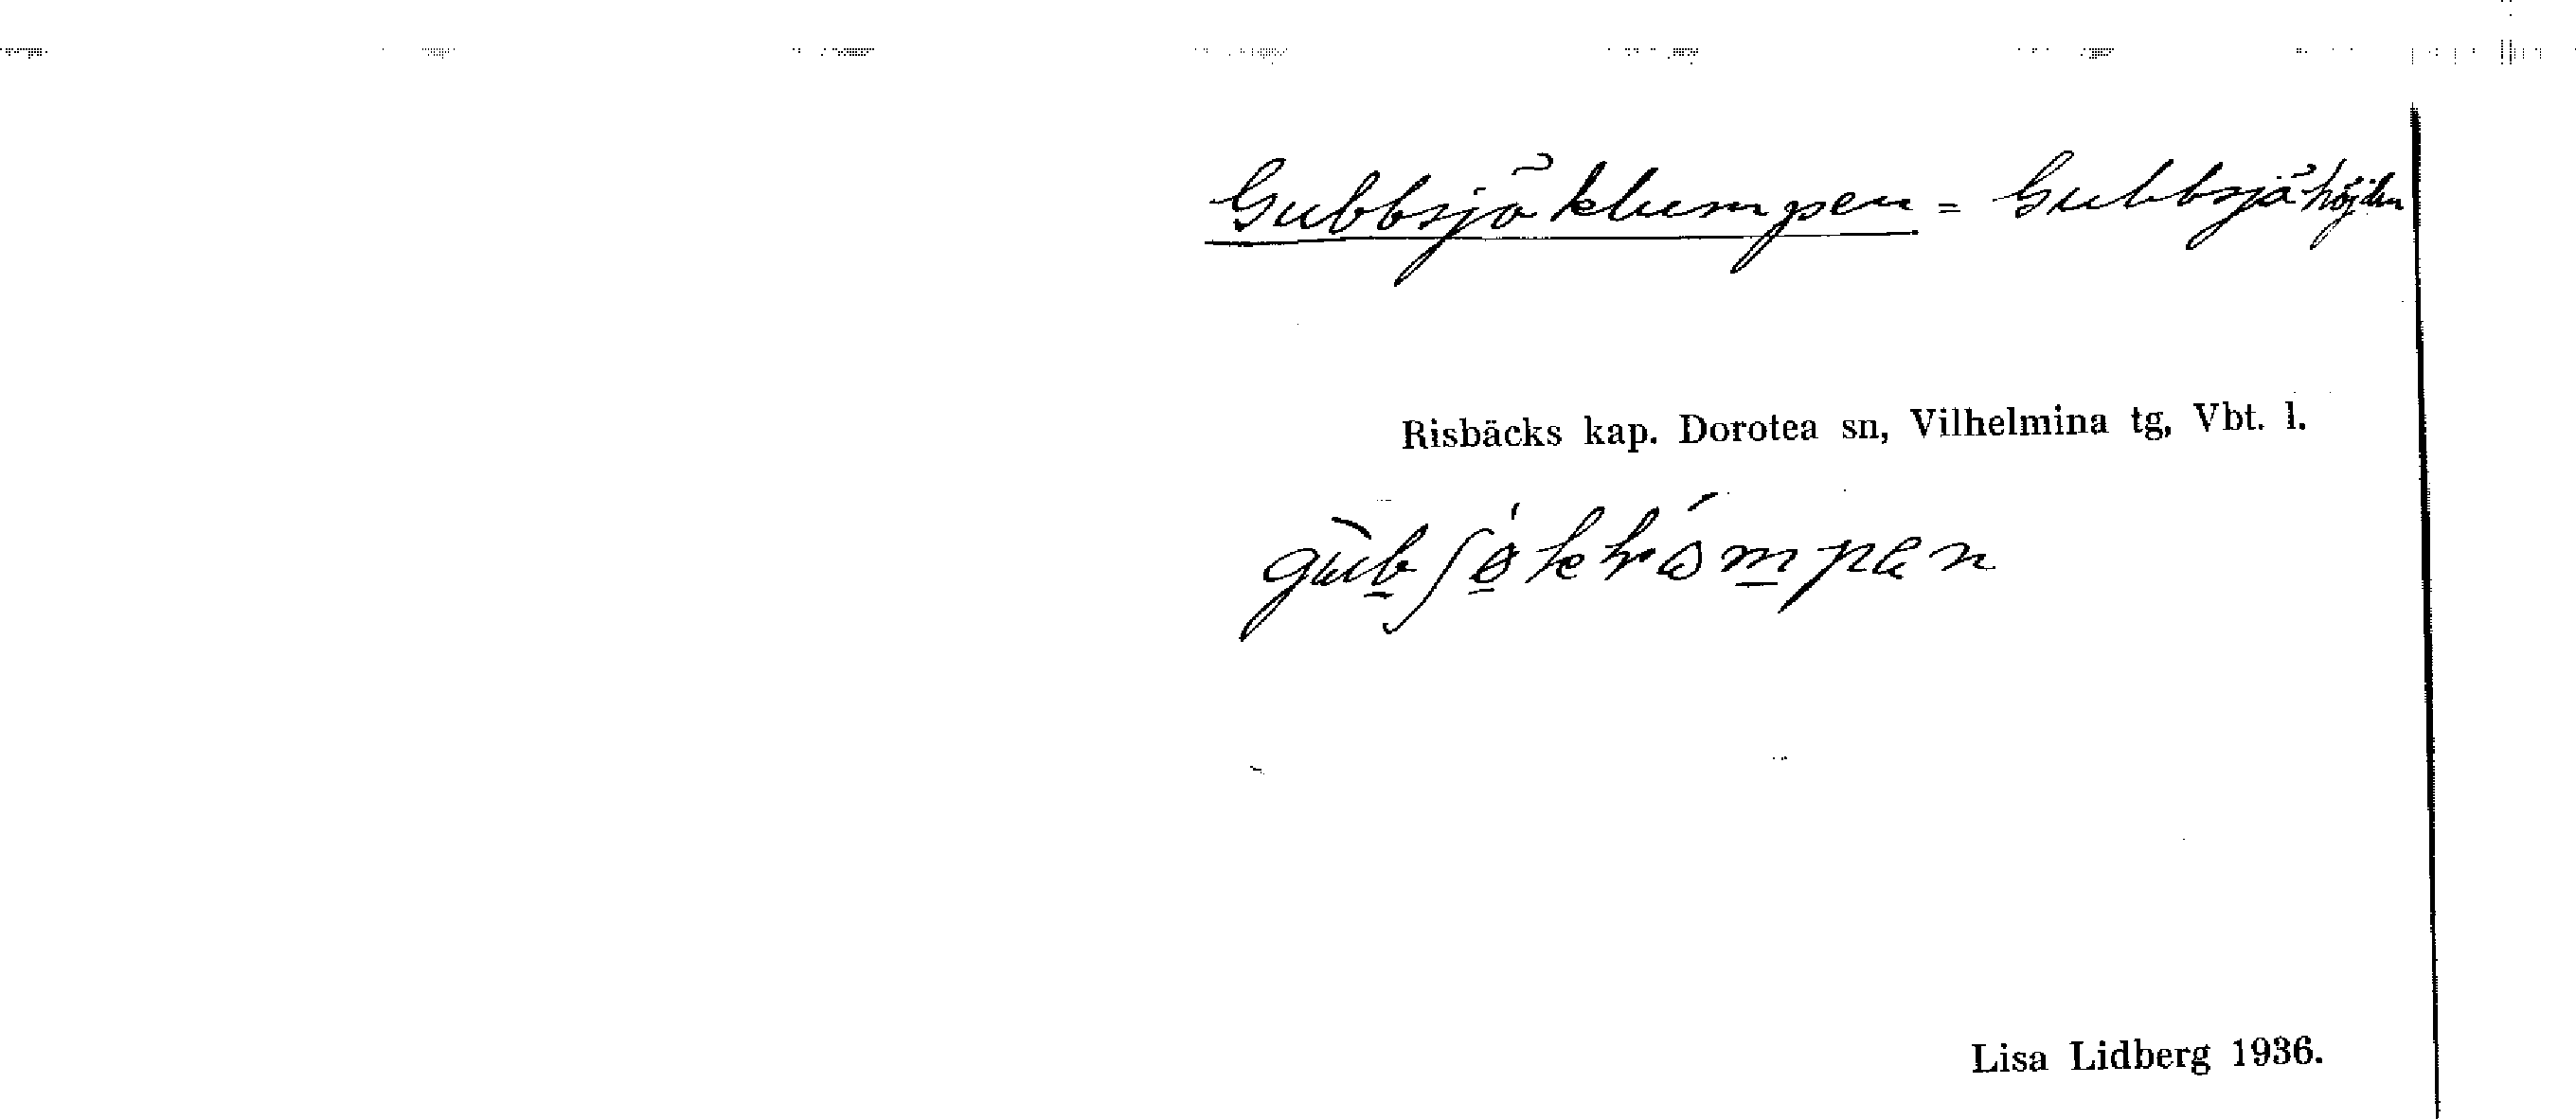 Gubbsjöklumpen = Gubbsjöhöjden
Risbäcks kap. Dorotea sn, Vilhelmina tg, Vbt. l.
Lisa Lidberg 1936.